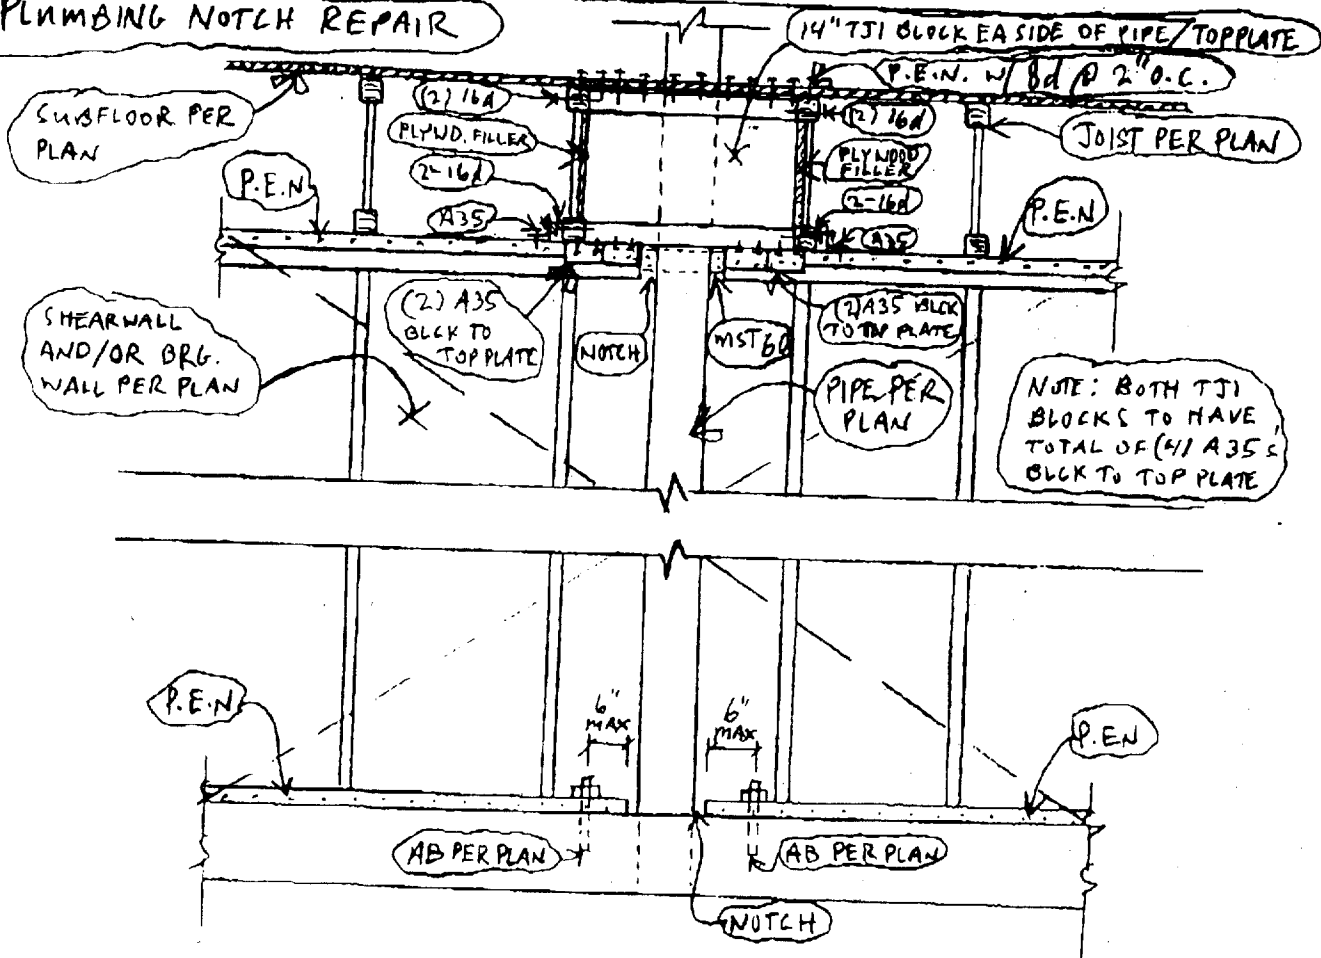 PLUMBING NOTCH REPAIR
14" TJI BLOCK EA SIDE OF PIPE/TOPPLATE
P.E.N. W/ 8d @ 2" O.C.
SUBFLOOR PER
PLAN
(2) 16d
PLYWD. FILLER
2-16d
A35
P.E.N
(2) 16d
PLYWOOD
FILLER
2-16d
A35
JOIST PER PLAN
P.E.N
SHEARWALL
AND/OR BRG.
WALL PER PLAN
(2) A35
BLCK TO
TOP PLATE
NOTCH
MST60
(2)A35 BLCK
TO TOP PLATE
PIPE PER
PLAN
NOTE: BOTH TJI
BLOCKS TO HAVE
TOTAL OF (4) A35s
BLCK TO TOP PLATE
P.E.N
6"
MAX
6"
MAX
P.E.N
AB PER PLAN
AB PER PLAN
NOTCH